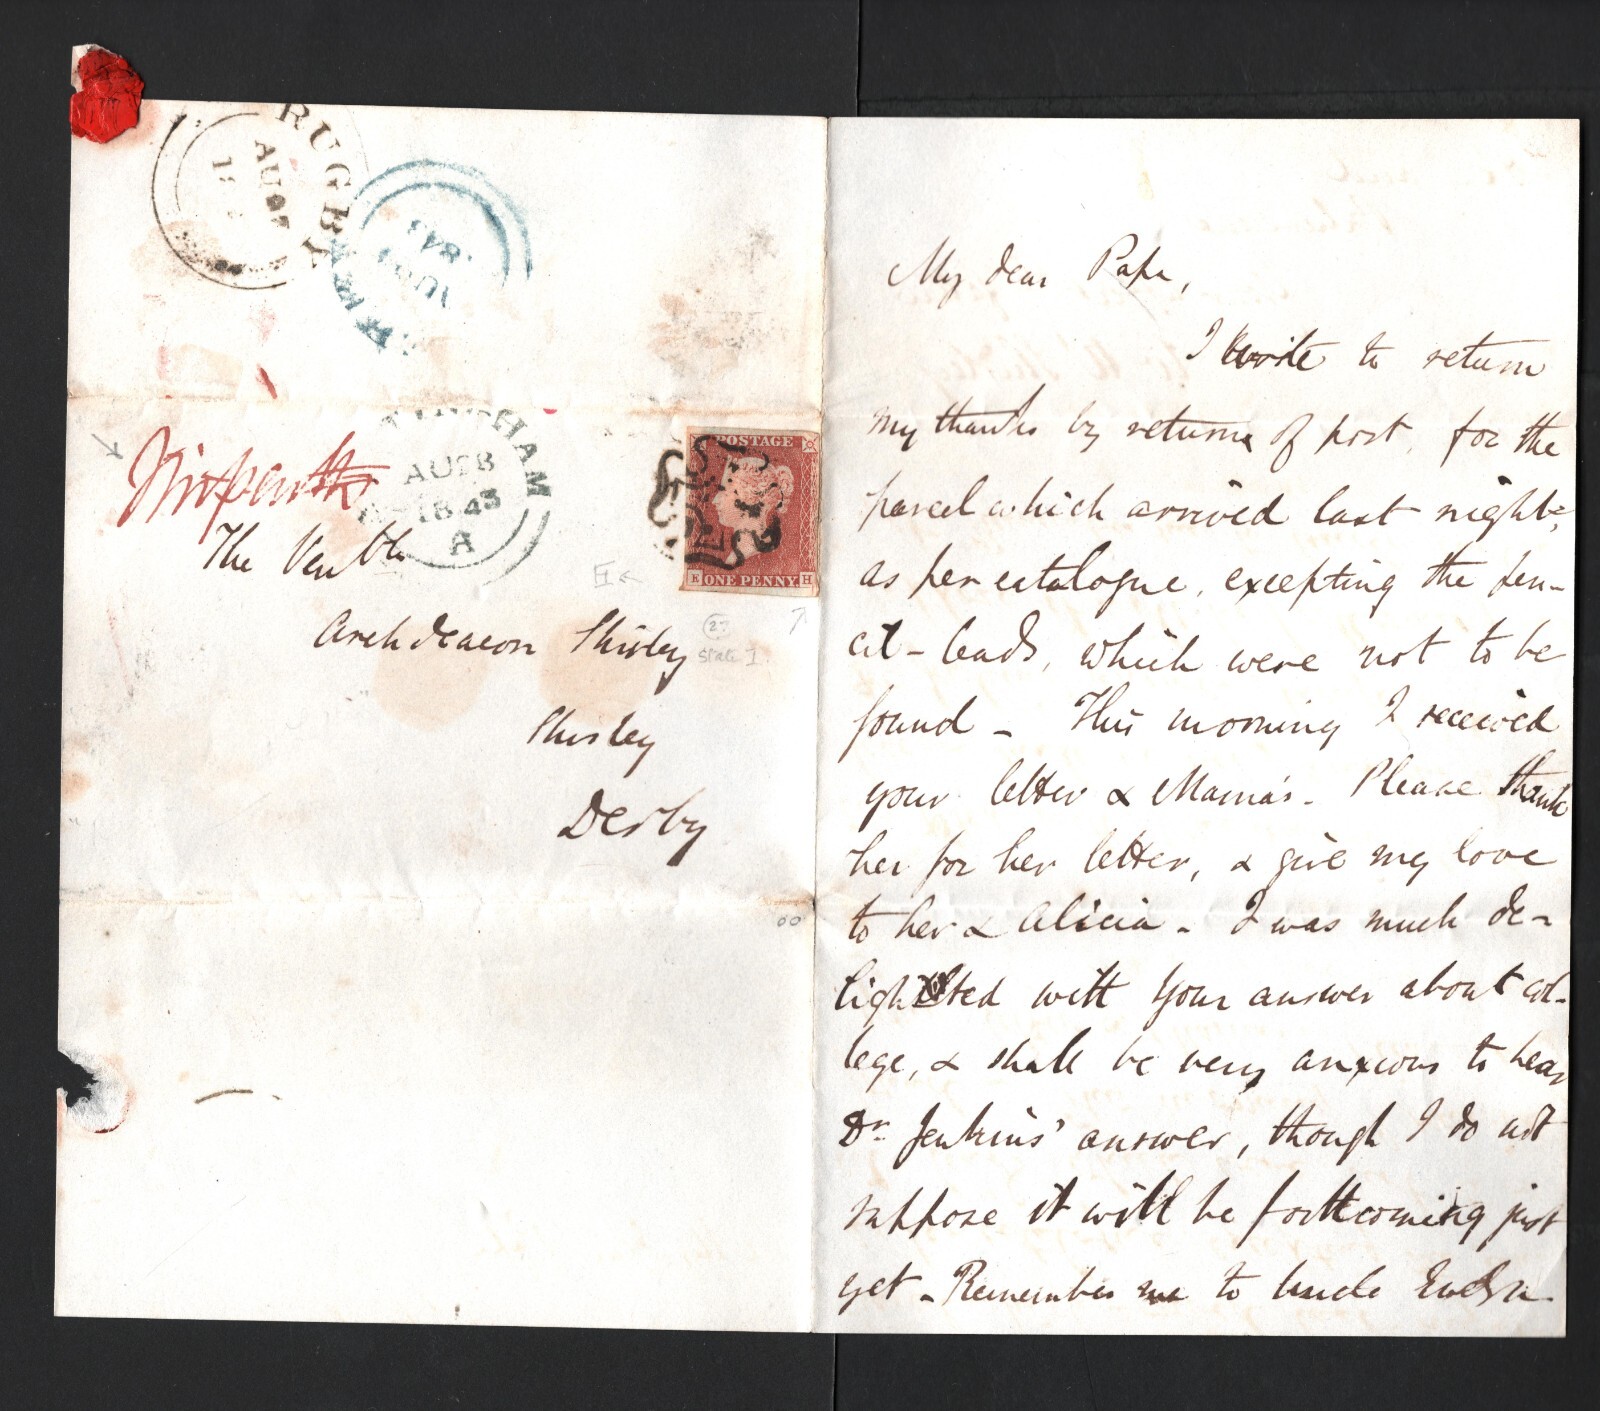 RUGBY
AU27
18
1843
AU28
1843
A
POSTAGE
ONE PENNY
K H
The Venble
Archdeacon Shirley
Shirley
Derby
27
State I
My dear Papa,
I write to return
my thanks by return of post, for the
parcel which arrived last night,
as per catalogue, excepting the pen-
cil-leads, which were not to be
found - This morning I received
your letter & Mama's. Please thank
her for her letter, & give my love
to her & Alicia - I was much de-
lighted with your answer about col-
lege, & shall be very anxious to hear
Dr. Jenkins' answer, though I do not
suppose it will be forthcoming just
yet - Remember me to Uncle